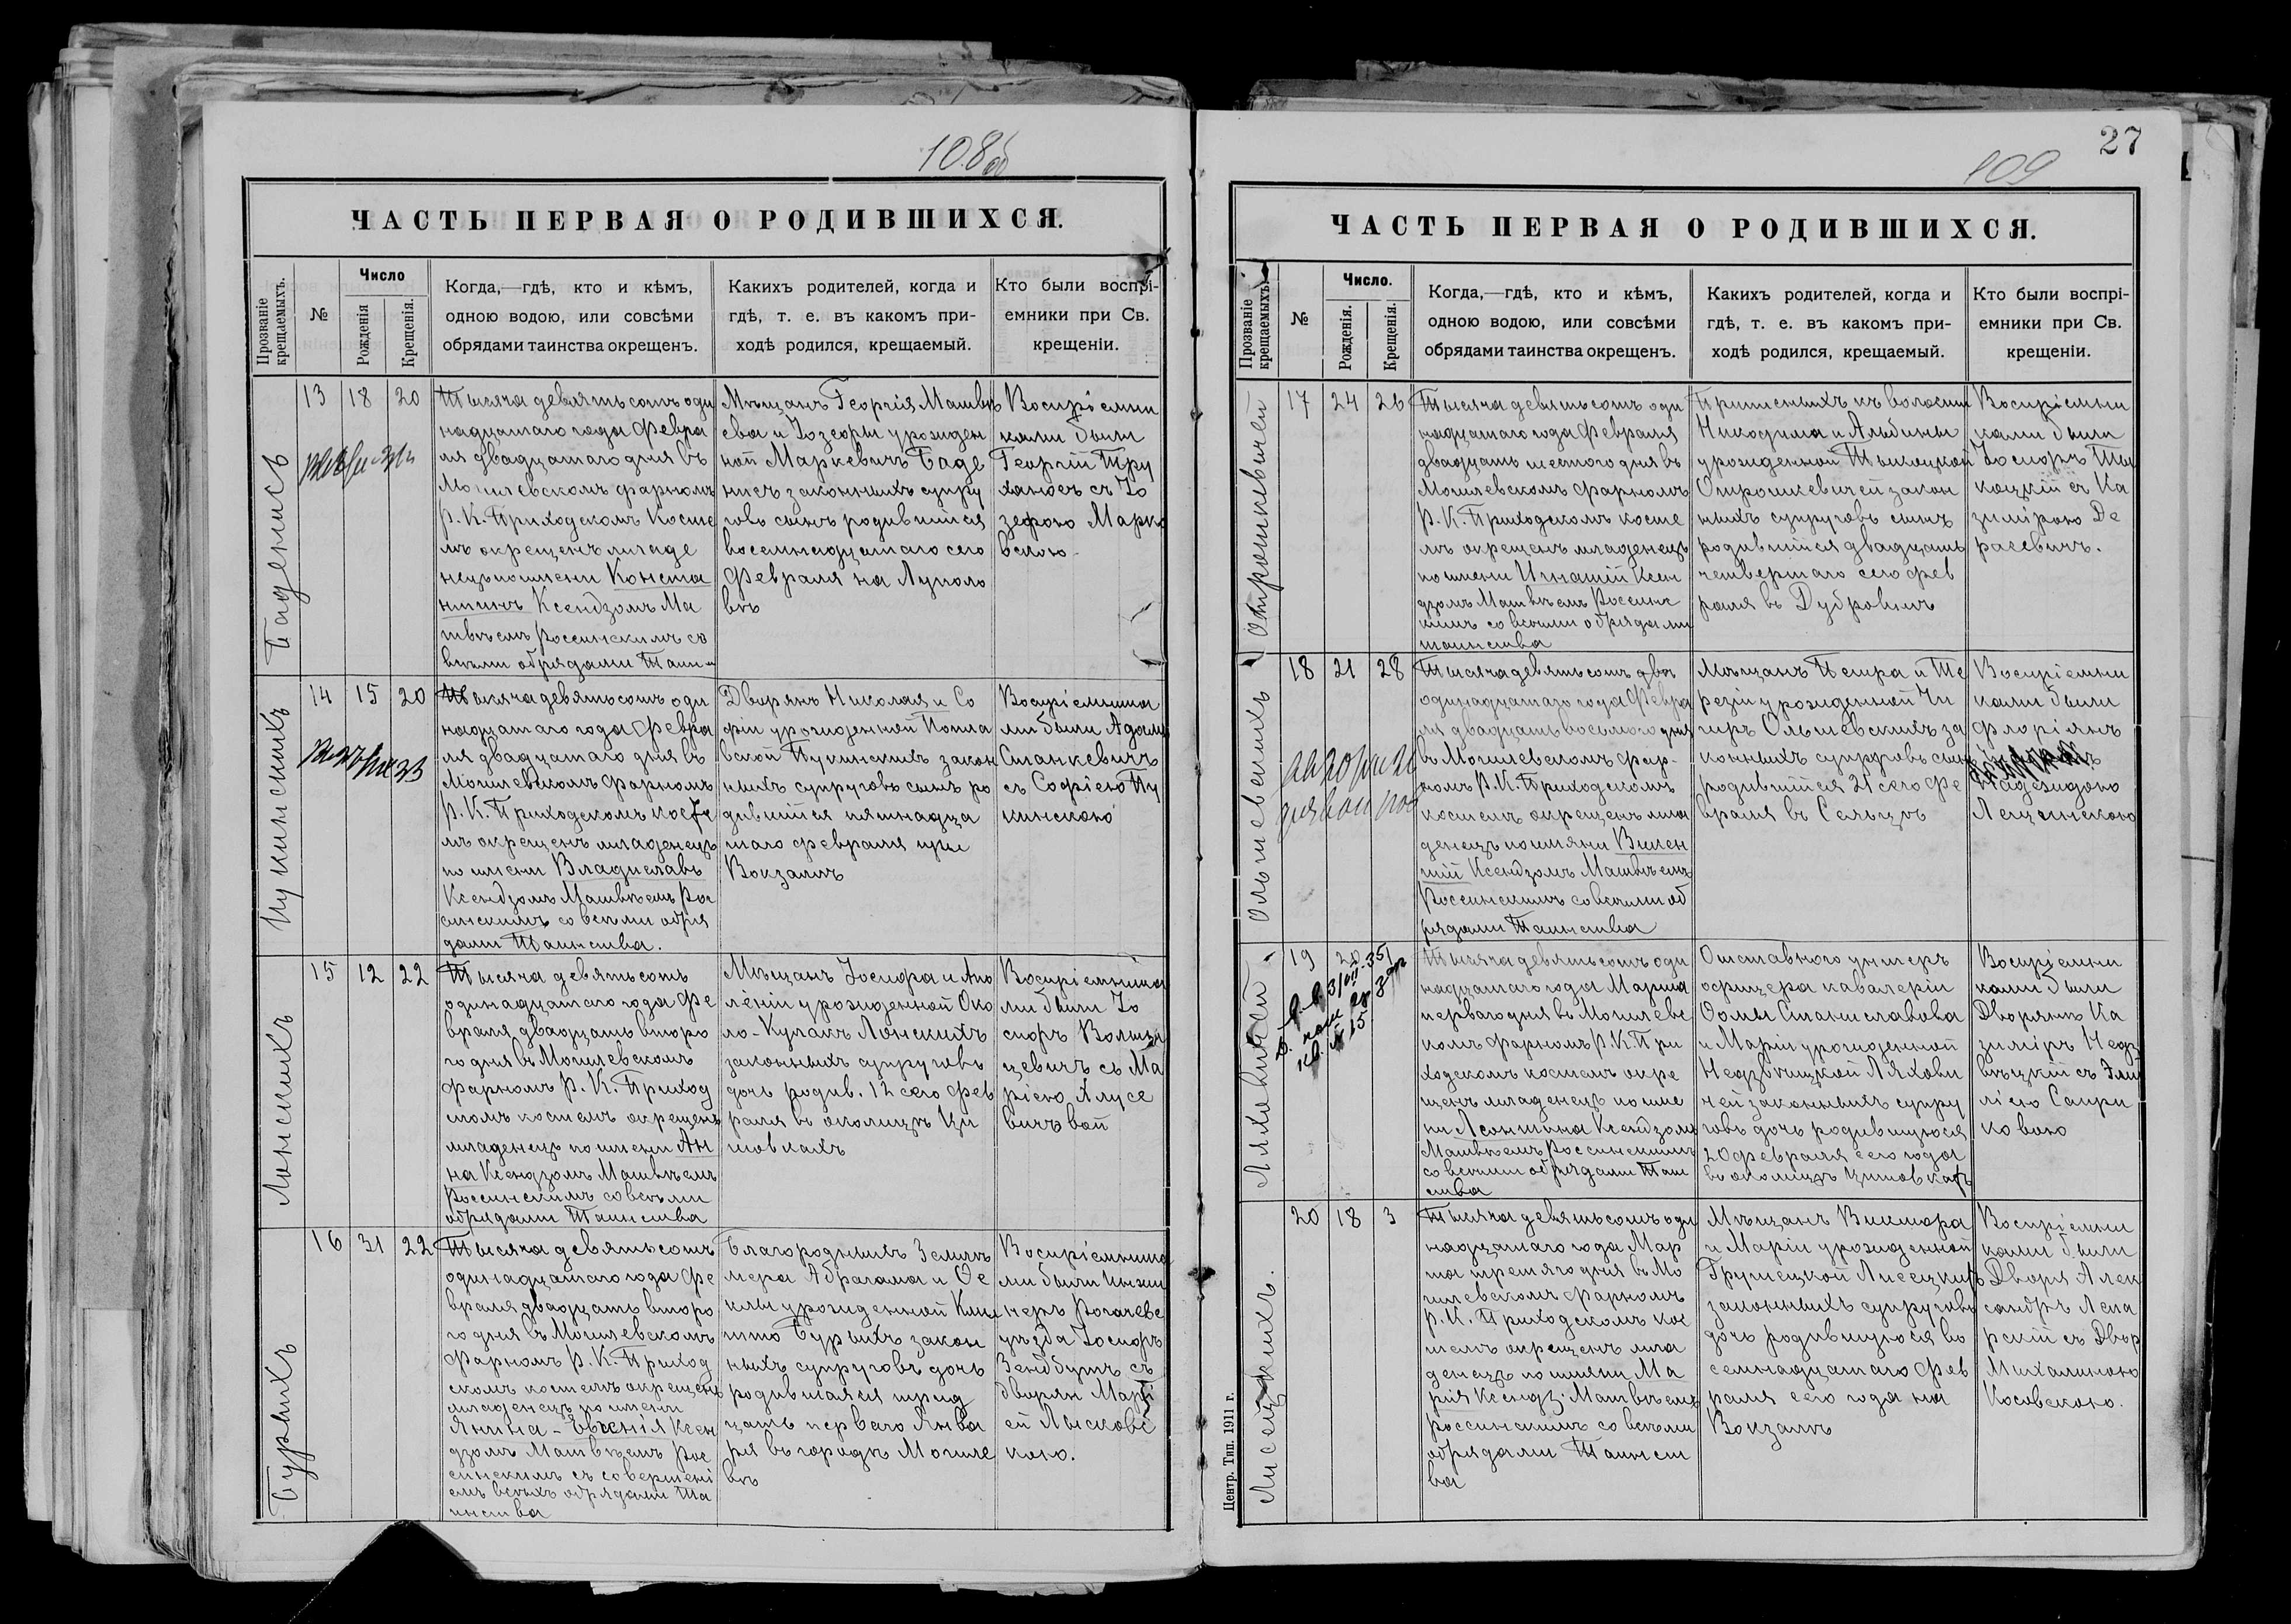 108об
ЧАСТЬ ПЕРВАЯ О РОДИВШИХСЯ.
Прозваніе крещаемыхъ.
№
Число
Рожденія
Крещенія.
Когда,—гдѣ, кто и кѣмъ,
одною водою, или совсѣми
обрядами таинства окрещенъ.
Какихъ родителей, когда и
гдѣ, т. е. въ какомъ при-
ходѣ родился, крещаемый.
Кто были воспрі-
емники при Св.
крещеніи.
13 18 20
Тысяча девятьсотъ оди
надцатаго года Февра
ля двадцатаго дня въ
Могилевскомъ фарномъ
Р. К. Приходскомъ Косте
лѣ окрещенъ младе
нецъ по имени Конста
нтинъ Ксендзомъ Ма
твѣемъ Россинскимъ со
всѣми обрядами Таин
Мѣщанъ Георгія Матвѣ
ева и Іозефы урожден
ной Маркевичъ
законныхъ супру
говъ сынъ родившійся
восемнадцатаго сего
Февраля на Луполо
вѣ
Воспріемни
ками были
Георгій Тру
хановъ съ Іо
зефою Марко
вскою
Пукинскихъ
14 15 20
Тысяча девятьсотъ оди
надцатаго года Февра
ля двадцатаго дня въ
Могилевскомъ Фарномъ
Р. К. Приходскомъ косте
лѣ окрещенъ младенецъ
по имени Владиславъ
Ксендзомъ Матвѣемъ Рос
синскимъ со всѣми обря
дами Таинства.
Дворянъ Николая и Со
фіи урожденной
Пукинскихъ закон
ныхъ супруговъ сынъ ро
дившійся пятнадца
таго февраля при
Вокзалѣ
Воспріемника
ми были Адамъ
Станкевичъ
съ Софіею Пу
кинскою
Лонскихъ
15 12 22
Тысяча девятьсотъ
одинадцатаго года Фе
враля двадцать второ
го дня въ Могилевскомъ
Фарномъ Р. К. Приход
скомъ костелѣ окрещенъ
младенецъ по имени Ан
на Ксендзомъ Матвѣемъ
Россинскимъ со всѣми
обрядами Таинства
Мѣщанъ Іосифа и Апо
лёніи урожденной Око
ло-Кулакъ Лонскихъ
законныхъ супруговъ
дочь родив. 12 сего Фев
раля въ околицѣ Ци
товкахъ
Воспріемника
ми были Іо
сифъ
съ Ма
ріею
Бурыхъ
16 31 22
Тысяча девятьсотъ
одинадцатаго года Фе
враля двадцать второ
го дня въ Могилевскомъ
Фарномъ Р. К. Приход
скомъ костелѣ окрещенъ
младенецъ по имени
Янина-Евгенія Ксен
дзомъ Матвѣемъ Рос
синскимъ съ совершені
емъ всѣхъ обрядами Та
инства
Благородныхъ Землѣ
мера Абрагама и Ѳе
клы урожденной
Бурыхъ закон
ныхъ супруговъ дочь
родившаяся трид
цать перваго Янва
ря въ городѣ Могиле
вѣ
Воспріемника
ми были Инже
неръ Рогачевс
уѣзда Іосифъ
съ
дворян Марі
ей Лысковс
кою.
27
109
ЧАСТЬ ПЕРВАЯ О РОДИВШИХСЯ.
Прозваніе крещаемыхъ.
№
Число.
Рожденія.
Крещенія.
Когда,—гдѣ, кто и кѣмъ,
одною водою, или совсѣми
обрядами таинства окрещенъ.
Какихъ родителей, когда и
гдѣ, т. е. въ какомъ при-
ходѣ родился, крещаемый.
Кто были воспрі-
емники при Св.
крещеніи.
Отрошкевичей
17 24 26
Тысяча девятьсотъ оди
надцатаго года Февраля
двадцать шестого дня въ
Могилевскомъ Фарномъ
Р. К. Приходскомъ косте
лѣ окрещенъ младенецъ
по имени Игнатій Ксен
дзомъ Матвѣемъ Россинс
кимъ со всѣми обрядами
таинства
къ волости
Никофима и Альбины
урожденной Тыкоцкой
Отрошкевичей закон
ныхъ супруговъ сынъ
родившійся двадцать
четвертаго сего фев
раля въ Дубровнѣ
Воспріемни
ками были
Іосифъ Ты
коцкій съ Ка
зимірою
Ольшевскихъ
18 21 28
Тысяча девятьсотъ два
одинадцатаго года Февра
ля двадцать восьмого дня
въ Могилевскомъ Фар-
номъ Р. К. Приходскомъ
костелѣ окрещенъ мла
денецъ по имяни Викен
тій Ксендзомъ Матвѣемъ
Россинскимъ со всѣми об
рядами Таинства
Мѣщанъ Петра и Те
резіи урожденной
Ольшевскихъ за
конныхъ супруговъ сынъ
родившійся 21 сего Фе
враля въ Сельцѣ
Воспріемни
ками были
Флоріянъ
Надеждою
Лещинскою
Ляховичей
19 20
Тысяча девятьсотъ оди
надцатаго года Марта
перваго дня въ Могилевс
комъ Фарномъ Р. К. При
ходскомъ костелѣ окре
щенъ младенецъ по име
ни Леонтина Ксендзомъ
Матвѣемъ Россинскимъ
со всѣми обрядами Таин
ства
Отставного унтеръ
офицера кавалеріи
Ѳомы Станиславова
и Маріи урожденной
Недзвѣцкой Ляхови
чей законныхъ супру
говъ дочь родившуюся
20 февраля сего года
въ околицѣ Цитовкахъ
Воспріемни
ками были
Дворянъ Ка
зиміръ Недз
вѣцкій съ Эми
ліею Сапри
ковою
Лисецкихъ.
20 18 3
Тысяча девятьсотъ оди
надцатаго года Мар
та третяго дня въ Мо
гилевскомъ Фарномъ
Р. К. Приходскомъ кос
телѣ окрещенъ мла
денецъ по имяни Ма
рія Ксендз. Матвѣемъ
Россинскимъ со всѣми
обрядами Таинст
ва
Мѣщанъ Виктора
и Маріи урожденной
Грушецкой Лисецкихъ
законныхъ супруговъ
дочь родившуюся во
семнадцатаго Фев
раля сего года на
Вокзалѣ
Воспріемни
ками были
Дворя Алек
сандръ Лепа
рскій съ Двор
Михалиною
Косовскою.
Центр. Тип. 1911 г.